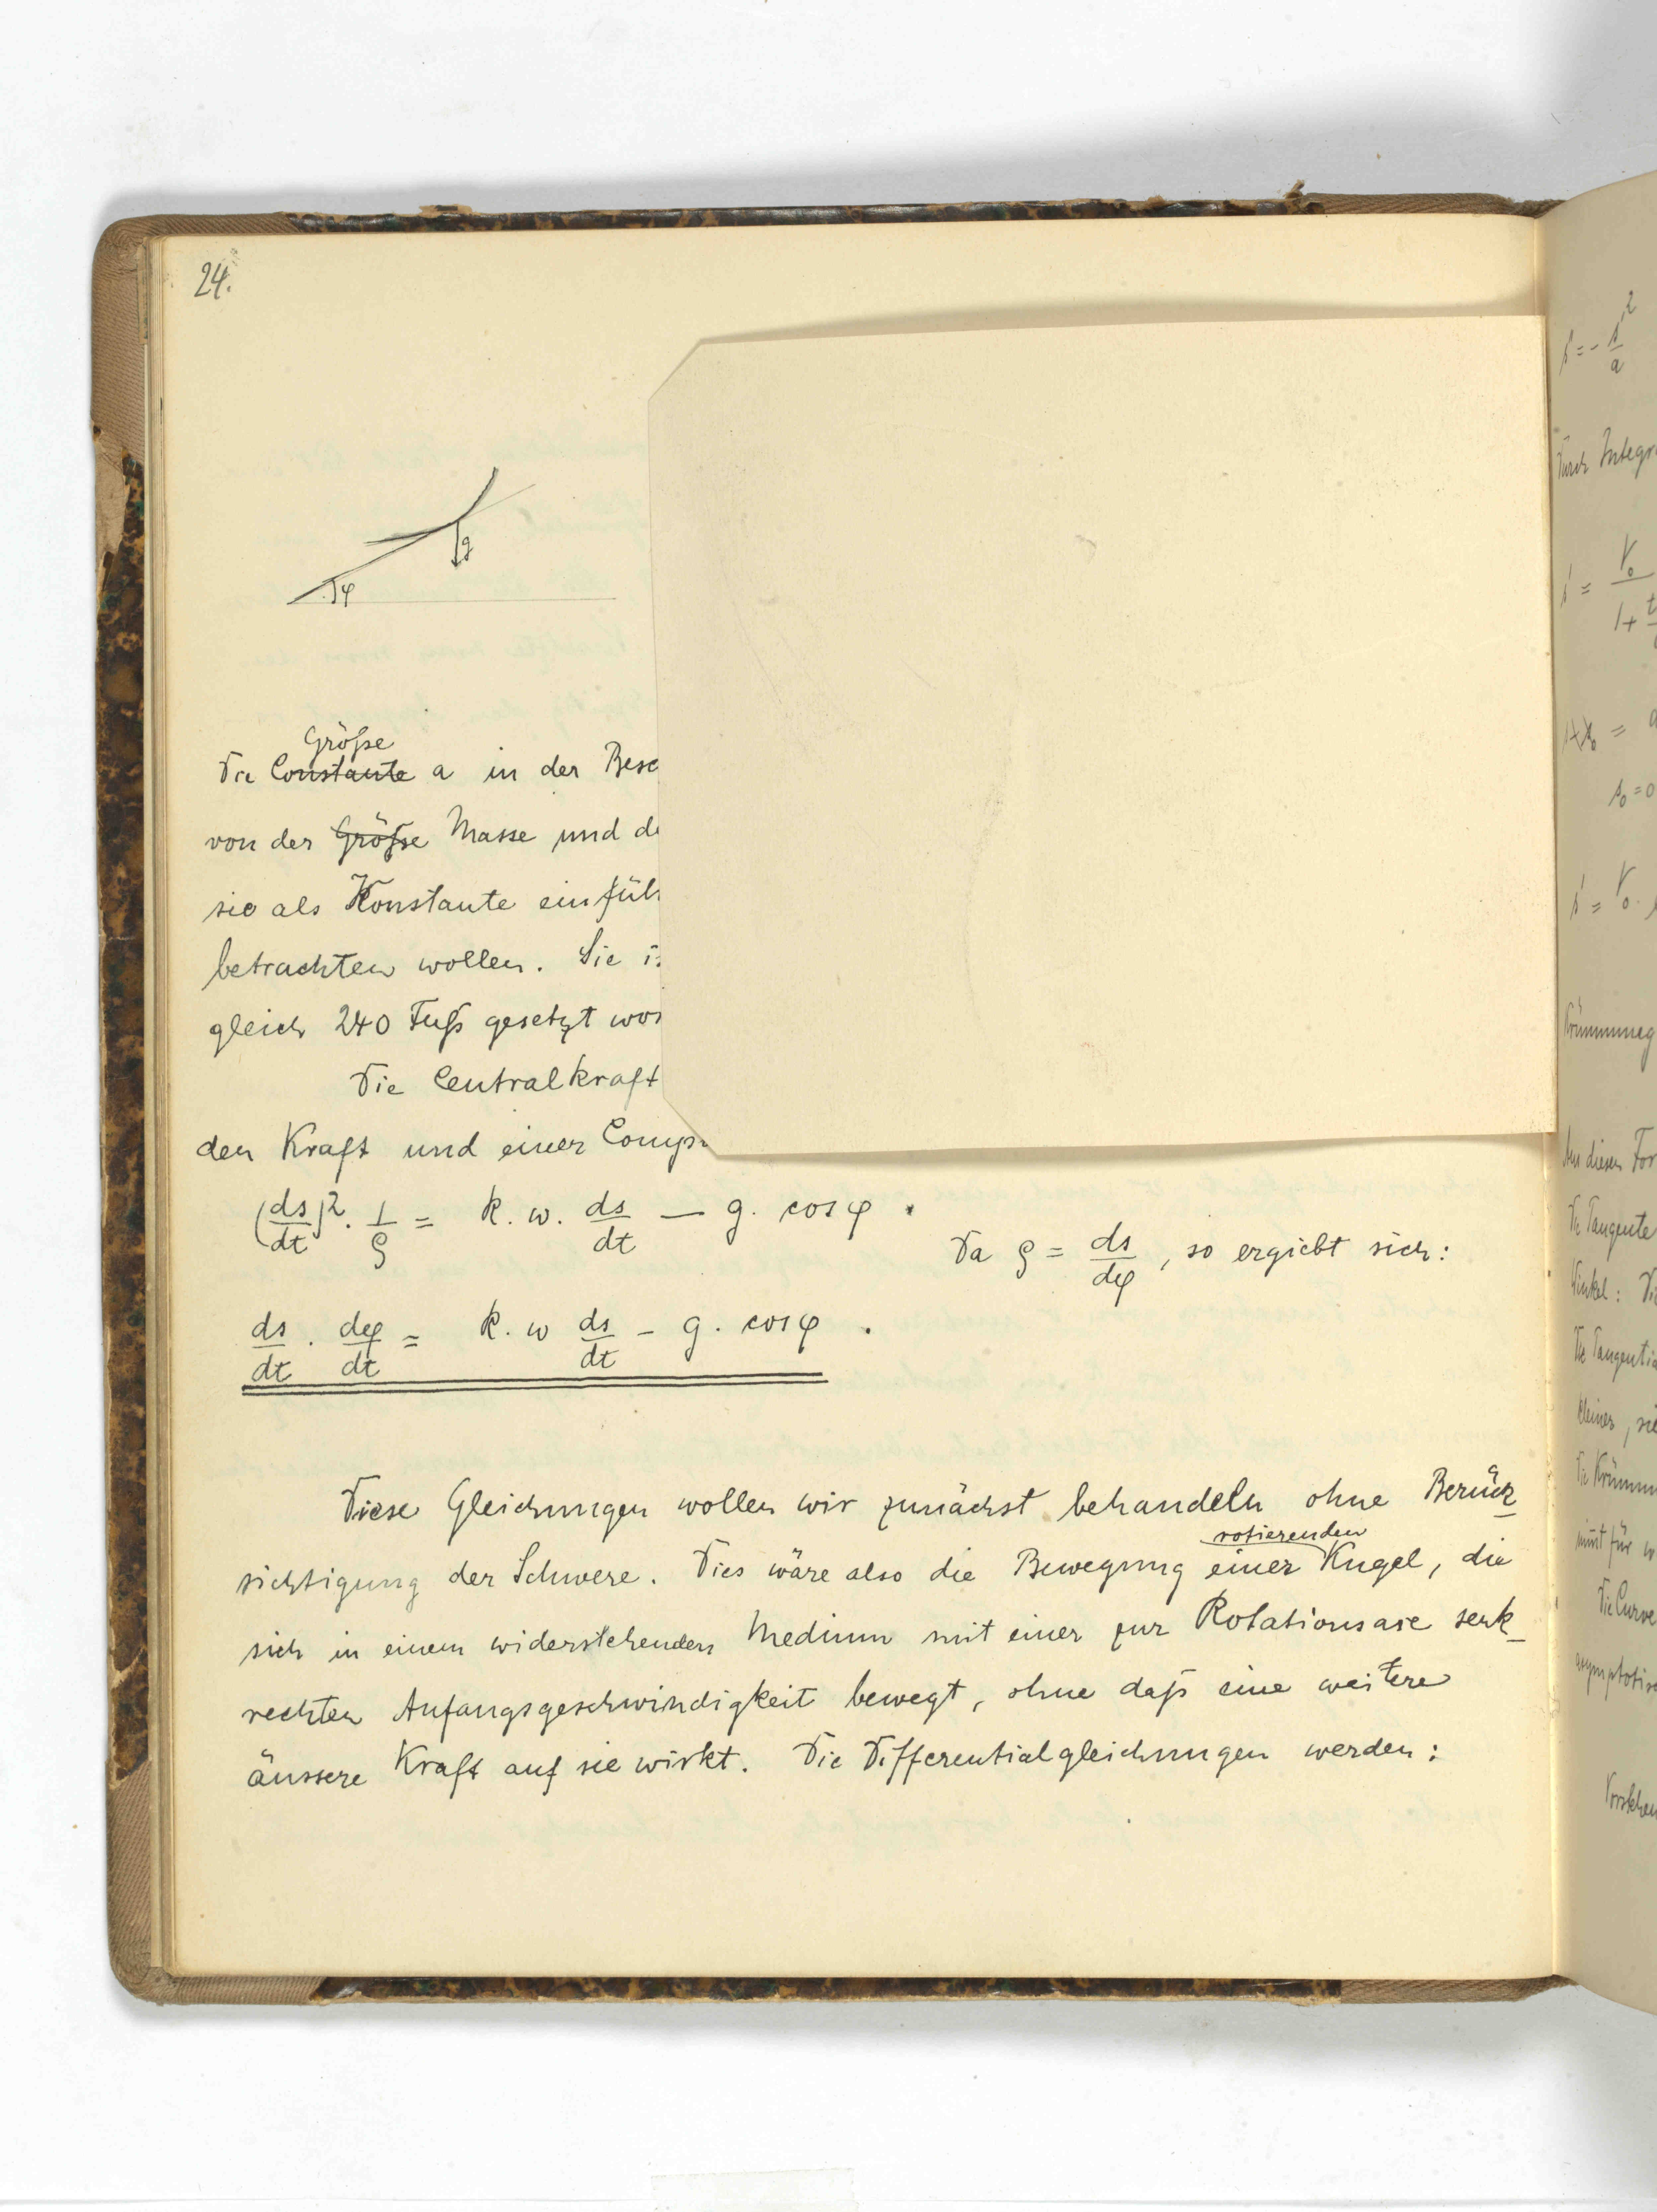 24.
g
φ
Größe
Die Constante a in der Besc
von der Größe Masse und de
sie als Konstante einfüh
betrachten wollen. Sie is
gleich 240 Fuß gesetzt wor
Die Centralkraft
den Kraft und einer Compo
(ds/dt)². 1/ρ = k. w. ds/dt — g. cos φ .
Da ρ = ds/dφ, so ergiebt sich:
ds/dt . dφ/dt = k. w ds/dt - g. cos φ .
Diese Gleichungen wollen wir zunächst behandeln ohne Berück-
rotierenden
sichtigung der Schwere. Dies wäre also die Bewegung einer Kugel, die
sich in einem widerstehenden Medium mit einer zur Rotationsaxe senk-
rechten Anfangsgeschwindigkeit bewegt, ohne daß eine weitere
äussere Kraft auf sie wirkt. Die Differentialgleichungen werden:
Durch Integr
Krümmung
Aus diesen For
Die Tangente
Winkel: Di
Die Tangentia
kleiner, sie
Die Krümm
nimmt für w
Die Curve
asymptotisc